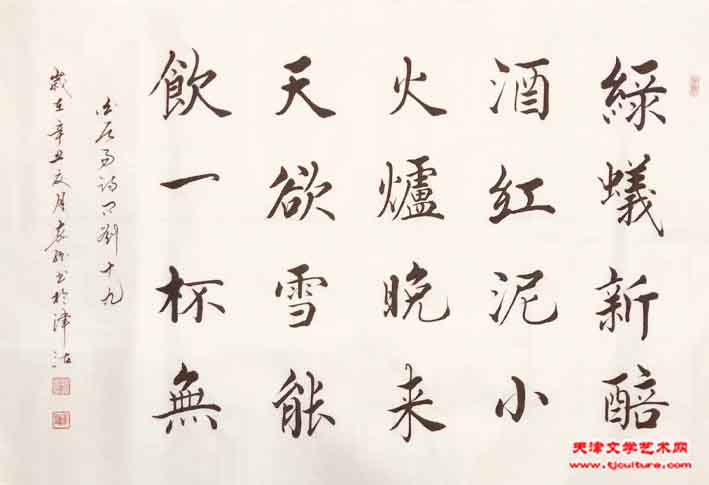 綠蟻新醅
酒紅泥小
火爐晚来
天欲雪能
飲一杯無
白居易詩問劉十九
歲在辛丑夏月書於津沽
天津文学艺术网
www.tjculture.com